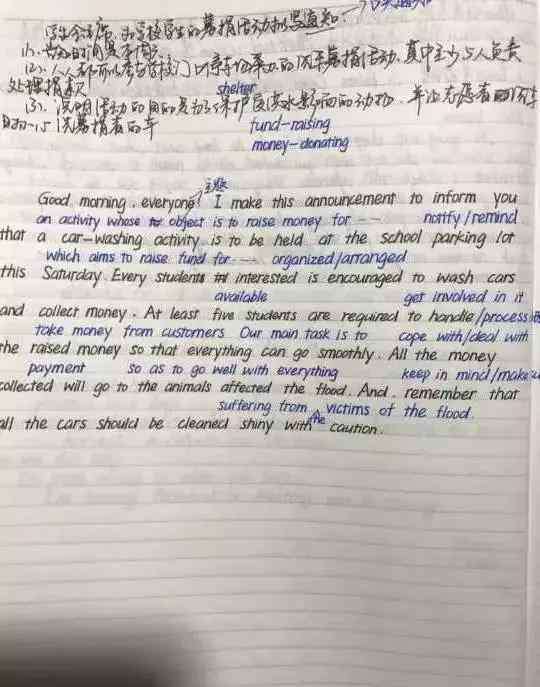 学生会主席,为学校学生的募捐活动拟写通知.
(1).告知时间及内容
(2).人人都可以参与学校门口停车场举办的洗车募捐活动.其中至少5人负责
处理捐款
shelter
(3).说明活动的目的是为了保护受洪水影响的动物.
fund-raising
的车
money-donating
主题
Good morning, everyone! I make this announcement to inform you
an activity whose object is to raise money for --- notify/remind
that a car-washing activity is to be held at the school parking lot
which aims to raise fund for --- organized/arranged
this Saturday. Every students interested is encouraged to wash cars
available get involved in it
and collect money. At least five students are required to handle/process
take money from customers Our main task is to cope with/deal with
the raised money so that everything can go smoothly. All the money
payment so as to go well with everything keep in mind/make
collected will go to the animals affected the flood. And, remember that
suffering from victims of the flood.
all the cars should be cleaned shiny with the caution.